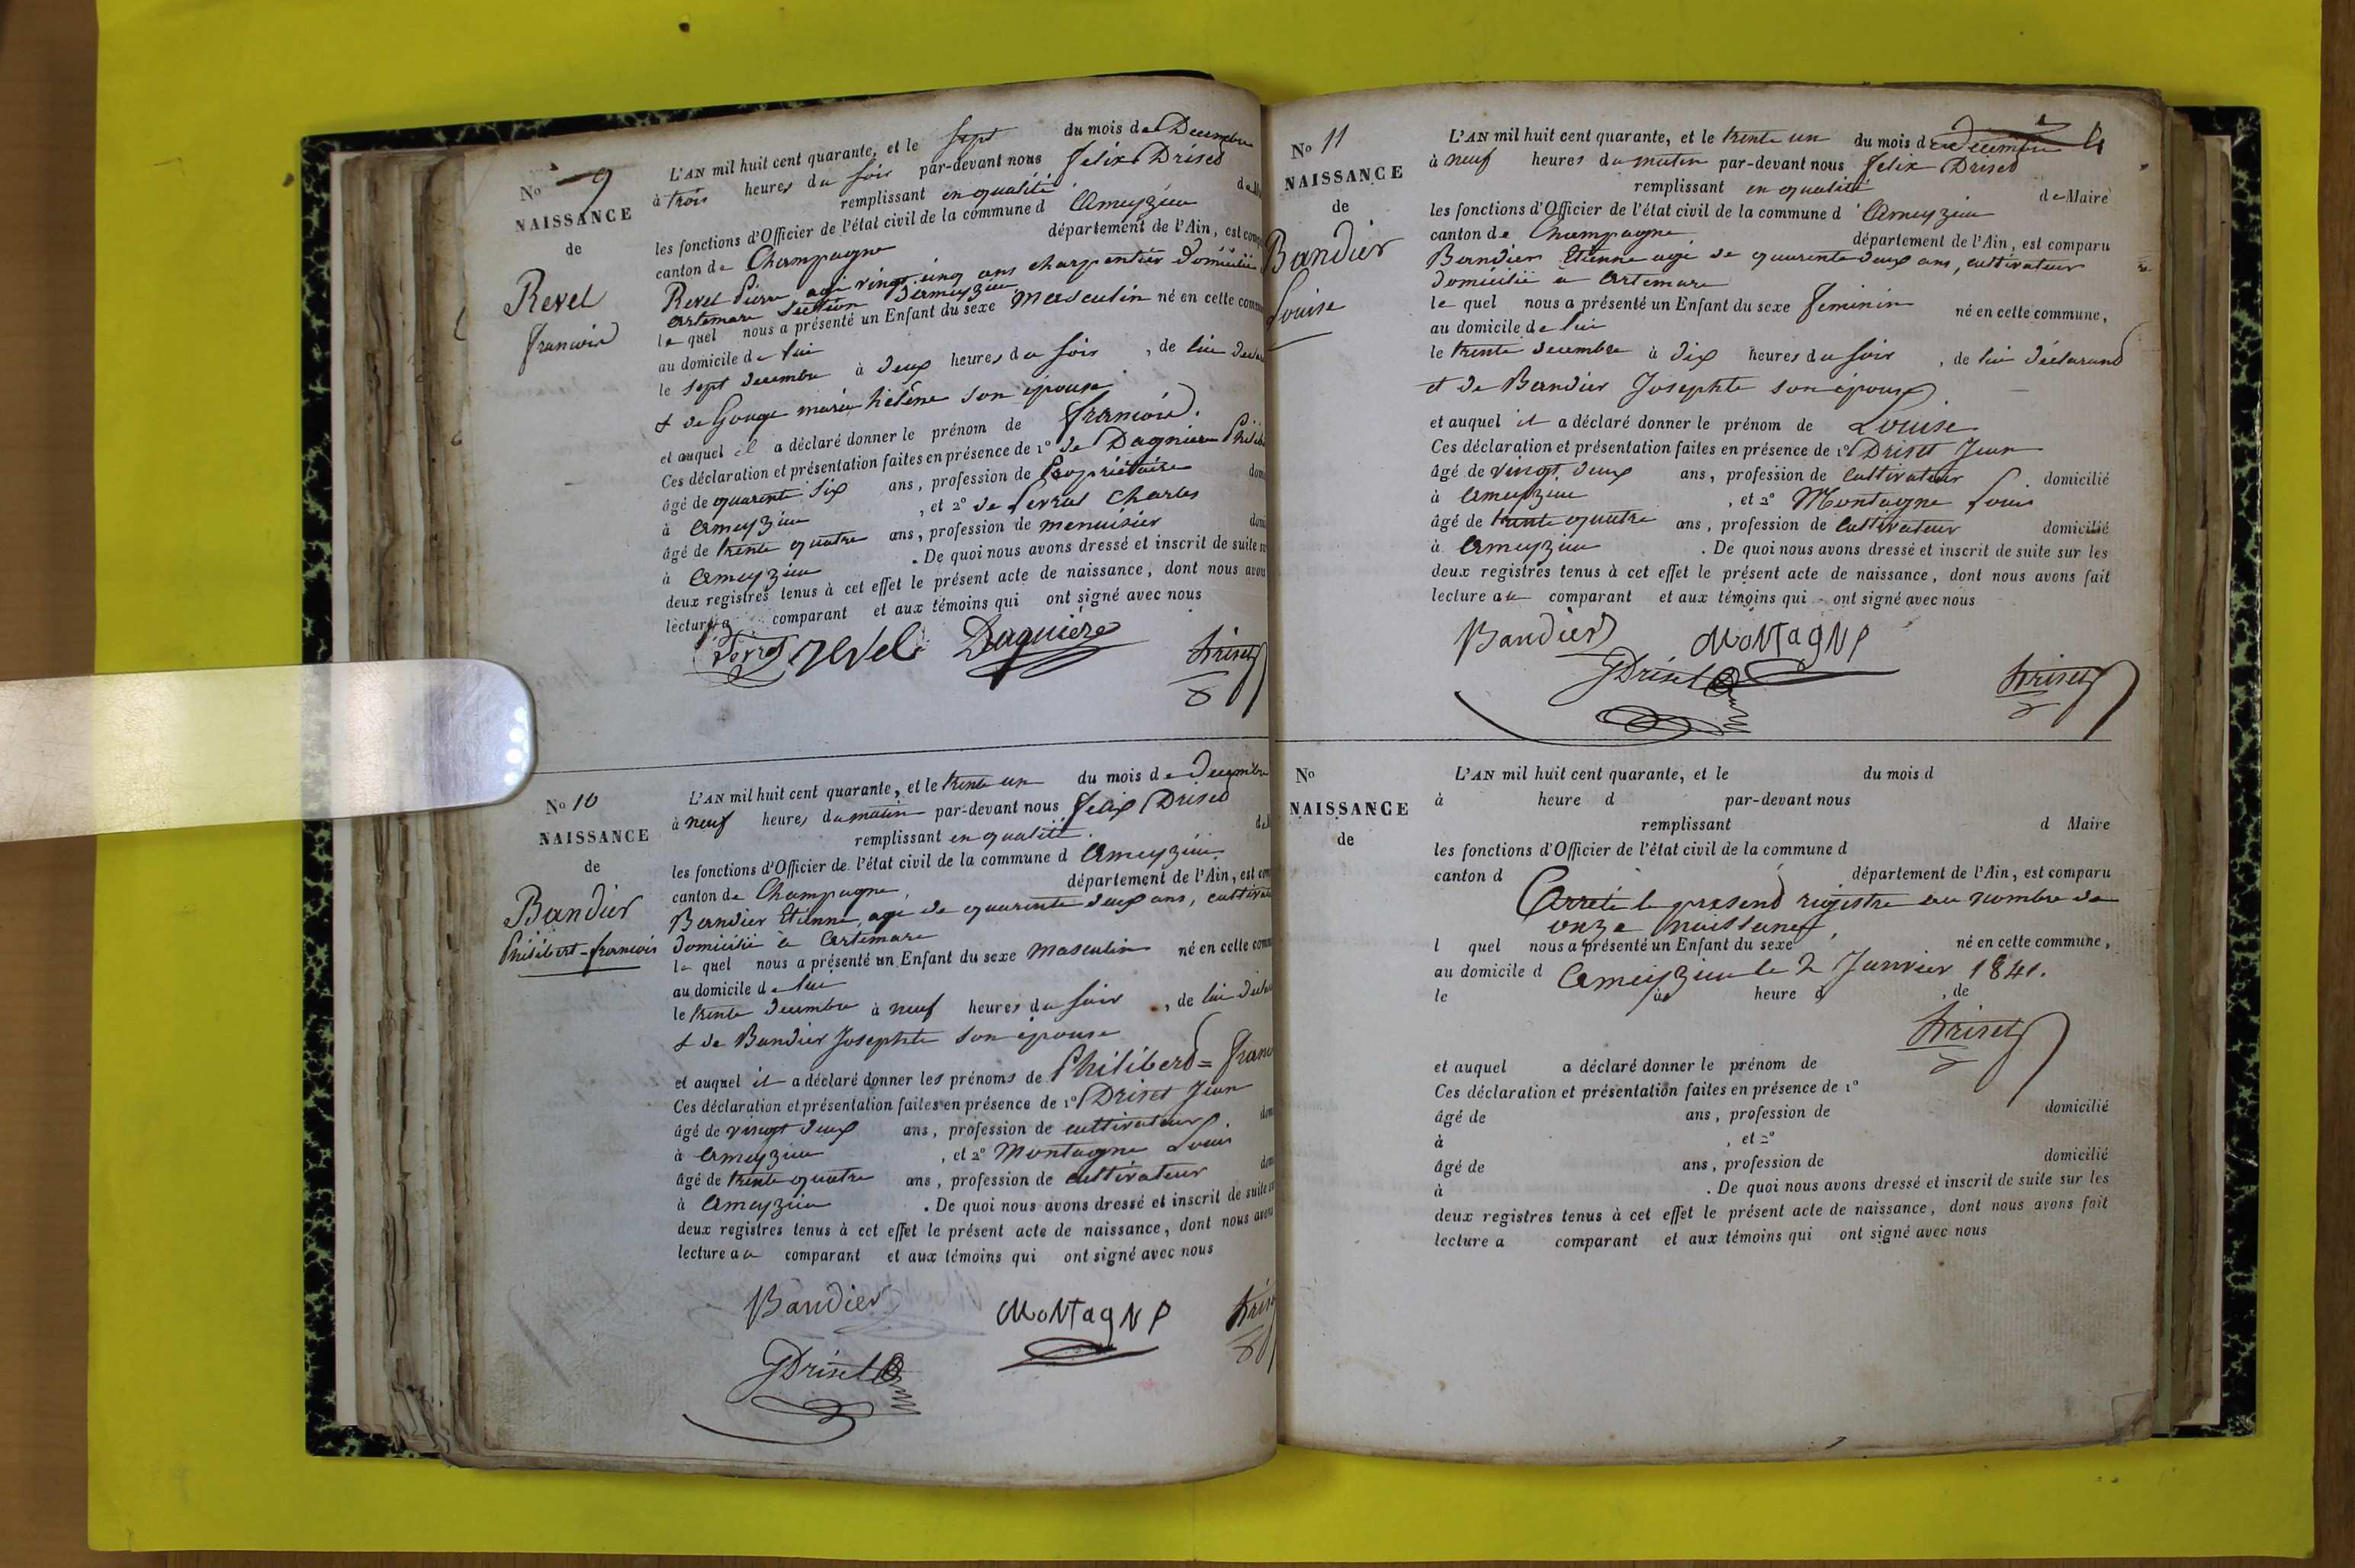 No 9
NAISSANCE
de
Revel
francois
L'AN mil huit cent quarante, et le sept du mois de Decembre
à trois heures du soir par-devant nous felix Driset
remplissant en qualité de
les fonctions d'Officier de l'état civil de la commune d'Ameyzieu
canton de Champagne département de l'Ain, est comp
Revel Pierre agé vingt cinq ans charpentier domicilié
artemare section d'ameyzieu
lequel nous a présenté un Enfant du sexe masculin né en cette comm
au domicile de lui
le sept decembre à deux heures du soir, de lui decla
& de Gouge marie hélène son épouse
et auquel il a déclaré donner le prénom de francois.
Ces déclaration et présentation faites en présence de 1o de Dagniere Phili
âgé de quarente six ans, profession de Propriétaire dom
à Ameyzieu, et 2o de ferrat Charles
âgé de trente quatre ans, profession de menuisier domi
à Ameyzieu. De quoi nous avons dressé et inscrit de suite su
deux registres tenus à cet effet le présent acte de naissance, dont nous avons
lecture a comparant et aux témoins qui ont signé avec nous
revel Daguiere Driset
No 10
NAISSANCE
de
Bandier
Philibert-francois
L'AN mil huit cent quarante, et le trente un du mois de Decembre
à neuf heures du matin par-devant nous felix Driset
remplissant en qualité de
les fonctions d'Officier de l'état civil de la commune d Ameyzieu
canton de Champagne département de l'Ain, est com
Bandier Etienne, agé de quarente deux ans, cultivat
domicilié à Artemare
lequel nous a présenté un Enfant du sexe masculin né en cette comm
au domicile de lui
le trente decembre à neuf heures du soir, de lui decla
& de Bandier Josephte son épouse
et auquel il a déclaré donner les prénoms de Philiberd=franc
Ces déclaration et présentation faites en présence de 1o Driset Jean
âgé de vingt deux ans, profession de cultivateur dom
à ameyzieu, et 2o Montagne Louis
âgé de trente quatre ans, profession de cultivateur dom
à Ameyzieu. De quoi nous avons dressé et inscrit de suite su
deux registres tenus à cet effet le présent acte de naissance, dont nous avons
lecture au comparant et aux témoins qui ont signé avec nous
Bandier MoNTagNe Driset
JDriset
No 11
NAISSANCE
de
Bandier
Louise
L'AN mil huit cent quarante, et le trente un du mois de decembre
à neuf heures du matin par-devant nous felix Driset
remplissant en qualité de Maire
les fonctions d'Officier de l'état civil de la commune d'Ameyzieu
canton de Champagne département de l'Ain, est comparu
Bandier Etienne agé de quarente deux ans, cultivateur
domicilié à Artemare
lequel nous a présenté un Enfant du sexe feminin né en cette commune,
au domicile de lui
le trente decembre à dix heures du soir, de lui déclarand
et de Bandier Josephte son épouse
et auquel il a déclaré donner le prénom de Louise
Ces déclaration et présentation faites en présence de 1o Driset Jean
âgé de vingt deux ans, profession de cultivateur domicilié
à Ameyzieu, et 2o Montagne Louis
âgé de trente quatre ans, profession de cultivateur domicilié
à Ameyzieu. De quoi nous avons dressé et inscrit de suite sur les
deux registres tenus à cet effet le présent acte de naissance, dont nous avons fait
lecture au comparant et aux témoins qui ont signé avec nous
Bandier MoNTagNe
JDriset Driset
No
NAISSANCE
de
L'AN mil huit cent quarante, et le du mois d
à heure d par-devant nous
remplissant d Maire
les fonctions d'Officier de l'état civil de la commune d
canton d département de l'Ain, est comparu
Arreté le présend régistre au nombre de
onze naissances
l quel nous a présenté un Enfant du sexe né en cette commune,
au domicile d
Ameyzieu le 2 Janvier 1841.
le à heure d, de
Driset
et auquel a déclaré donner le prénom de
Ces déclaration et présentation faites en présence de 1o
âgé de ans, profession de domicilié
à, et 2o
âgé de ans, profession de domicilié
à. De quoi nous avons dressé et inscrit de suite sur les
deux registres tenus à cet effet le présent acte de naissance, dont nous avons fait
lecture a comparant et aux témoins qui ont signé avec nous